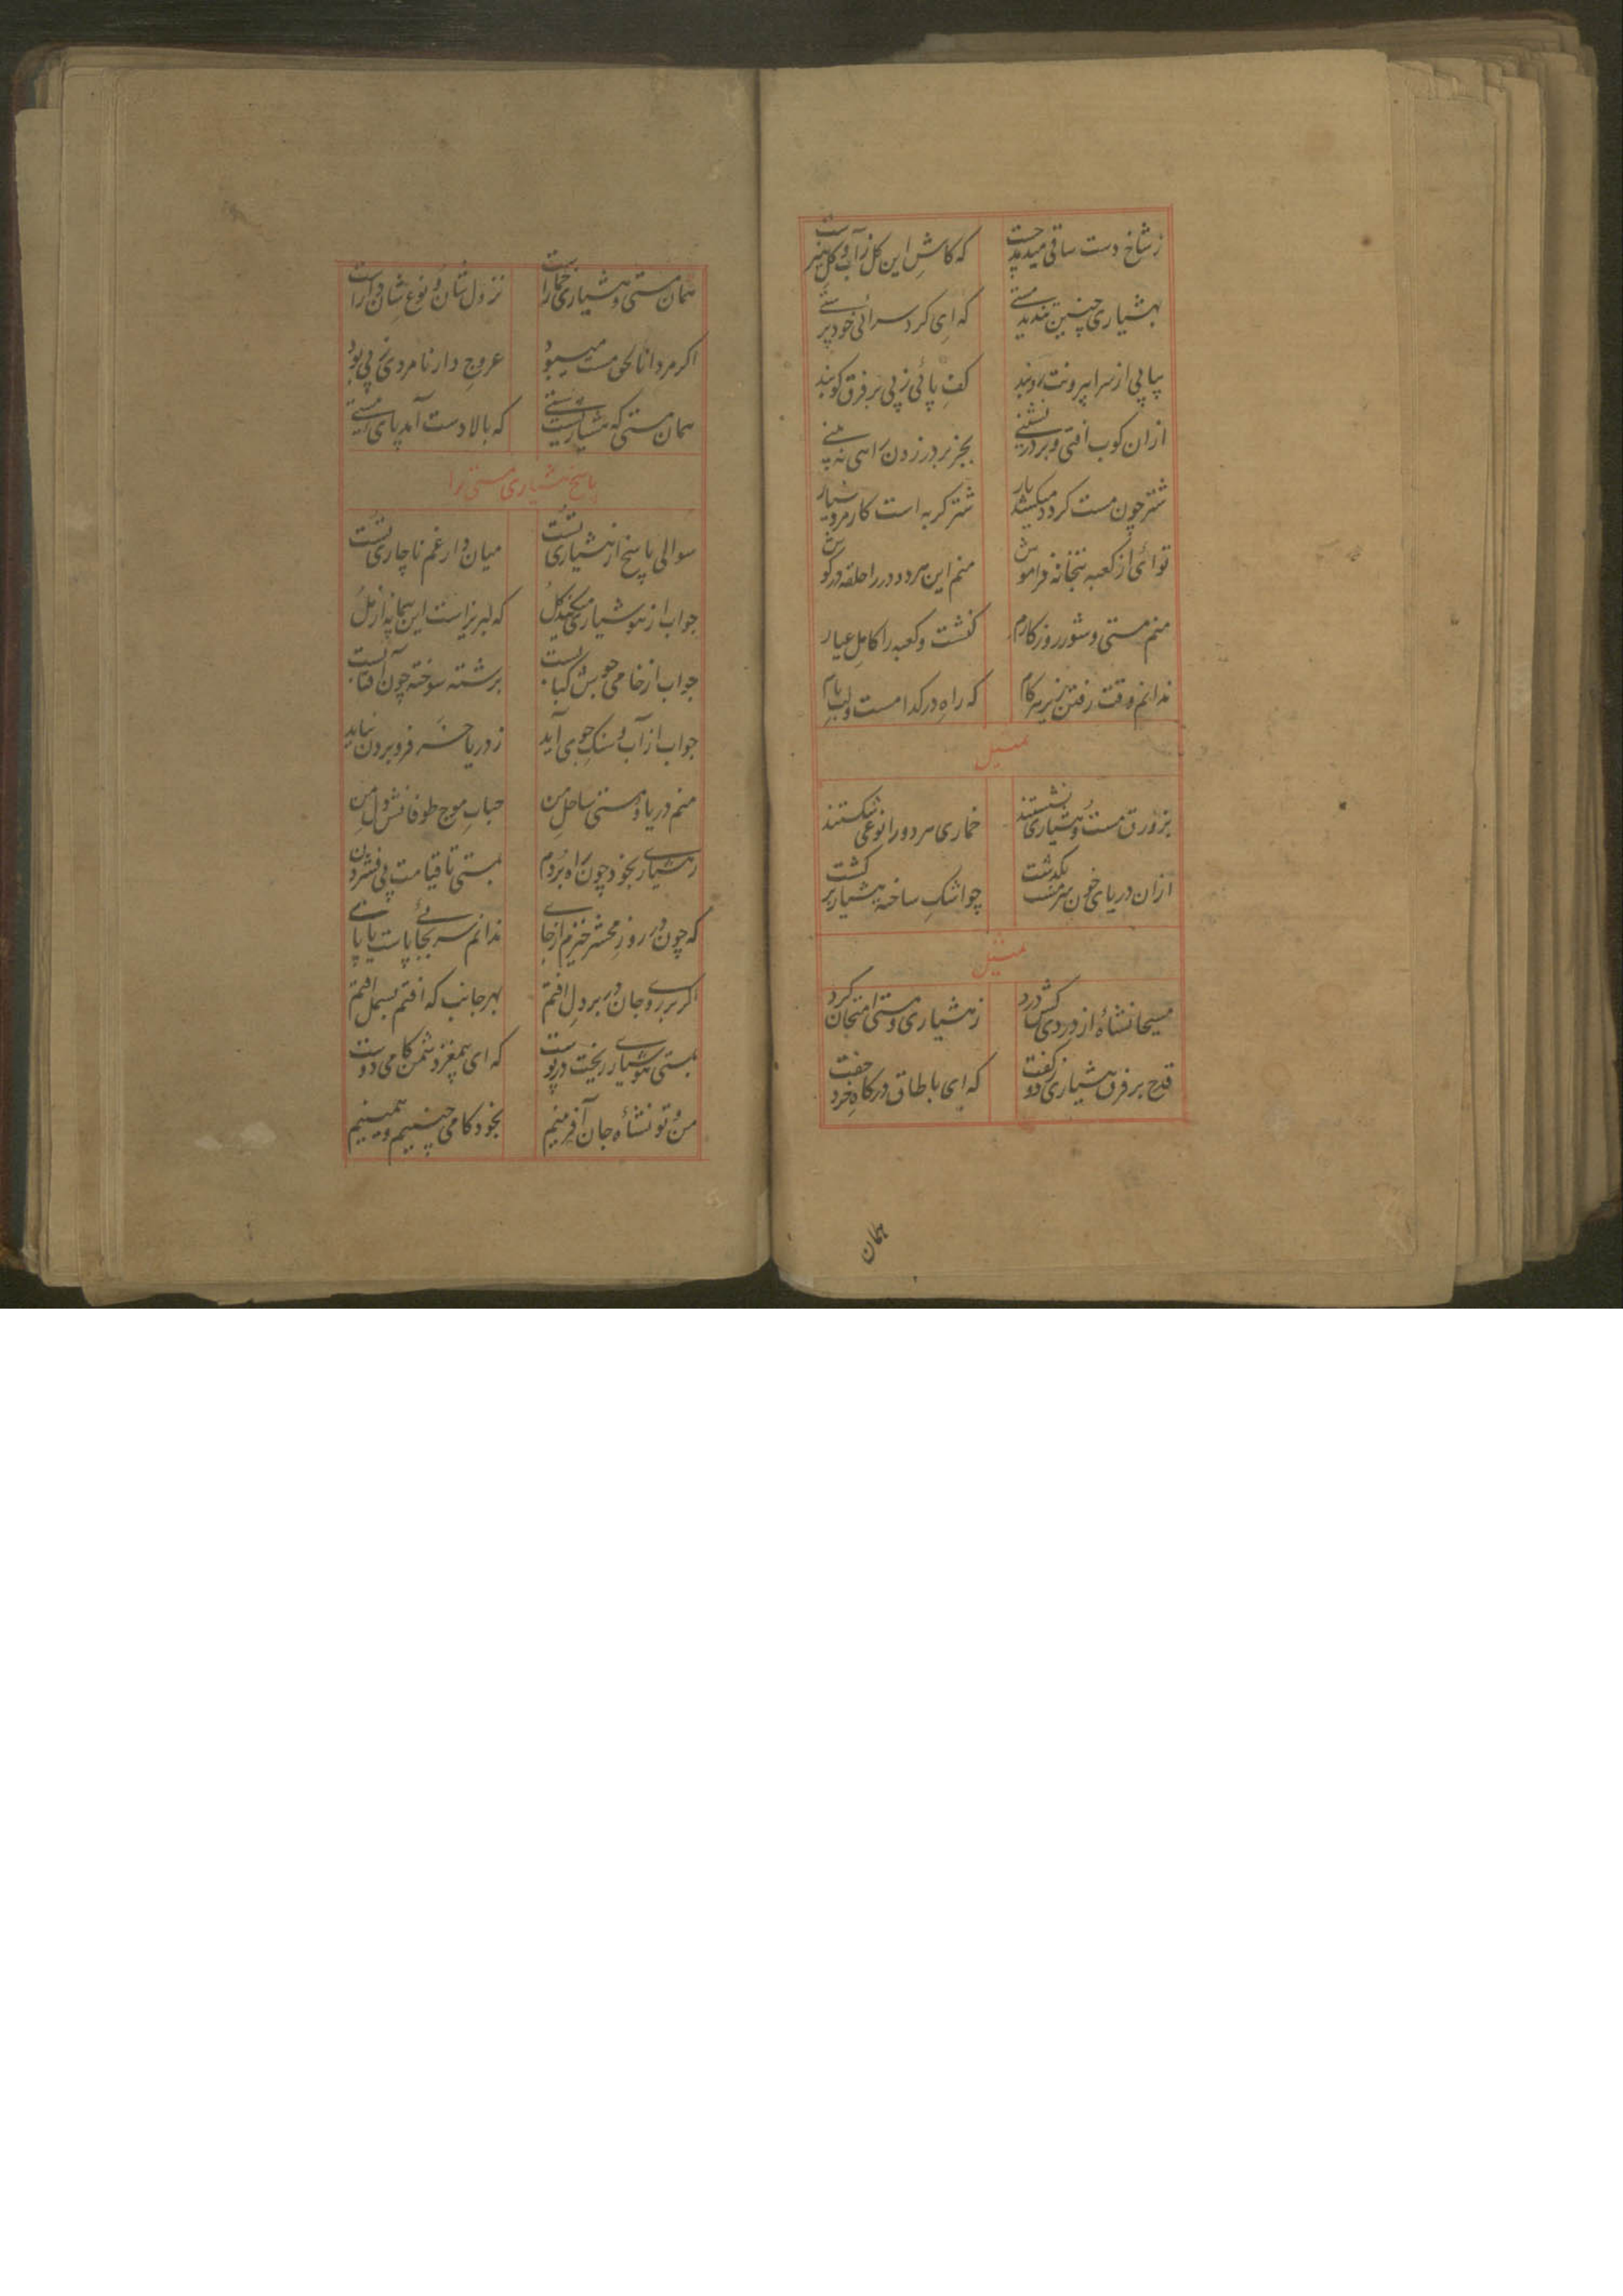 ز شاخ دست ساقی میدمد جست که کاش این گل ز آب و گل
بهشیاری چنین تندید مستی که ای گرد سرائی خود پرستی
پیاپی از سرا بیرونت روبند کف پائی ز پی بر فرق کوبند
ازان کوب افتی و بر در نشینی بجز بر در زدن راهی نه بینی
شتر چون مست گردد میکشد بار شتر گربه است کار مرد هشیار
توائی از کعبه بتخانه فراموش منم این هر دو در را حلقه در گوش
منم مستی و شور روزگارم کنشت و کعبه را کامل عیارم
ندانم وقت رفتن زیر هر گام که راه در کدامست و لب بام
تمثیل
بزورق مست و هشیاری نشستند خماری هر دو را نوعی شکستند
ازان دریای خون سرمست بگذشت چو اشک ساخته هشیار برگشت
تمثیل
مسیحا نشاهٔ از دردی کش درد ز هشیاری و مستی امتحان کرد
قدح بر فرق هشیاری زد و گفت که ای با طاق درگاه خرد جفت
همان
همان مستی و هشیاری خمارست نزول شان و نوع شان دگر است
اگر مرد انا الحق مست میبود عروج دار نامردی ز پی بود
همان مستی که هشیار نیستی که بالا دست آمد پای مستی
پاسخ هشیاری مستی را
سوالی پاسخ از هشیاری تست میان دار غم ناچاری تست
جواب از هوشیاری میکند گل که لبریز است این پیمانه از مل
جواب از خامی جوش کبابست برشته سوخته چون آفتابست
جواب از آب و سنگ جوی آید ز دریا جز فرو بردن نیاید
منم دریا و مستی ساحل من حباب موج طوفانش دل من
ز هشیاری بخود چون راه بردم بمستی تا قیامت پی فشردم
که چون در روز محشر خیزم از جای ندانم سر بجای پاست یا پای
اگر بر روی جان در بر دل افتم بهر جانب که افتم بسمل افتم
بمستی هوشیاری ریخت در پوست که ای بیمغز دشمن کامی دوست
من و تو نشاهٔ جان آفرینیم بخود کامی چنینیم و همینیم